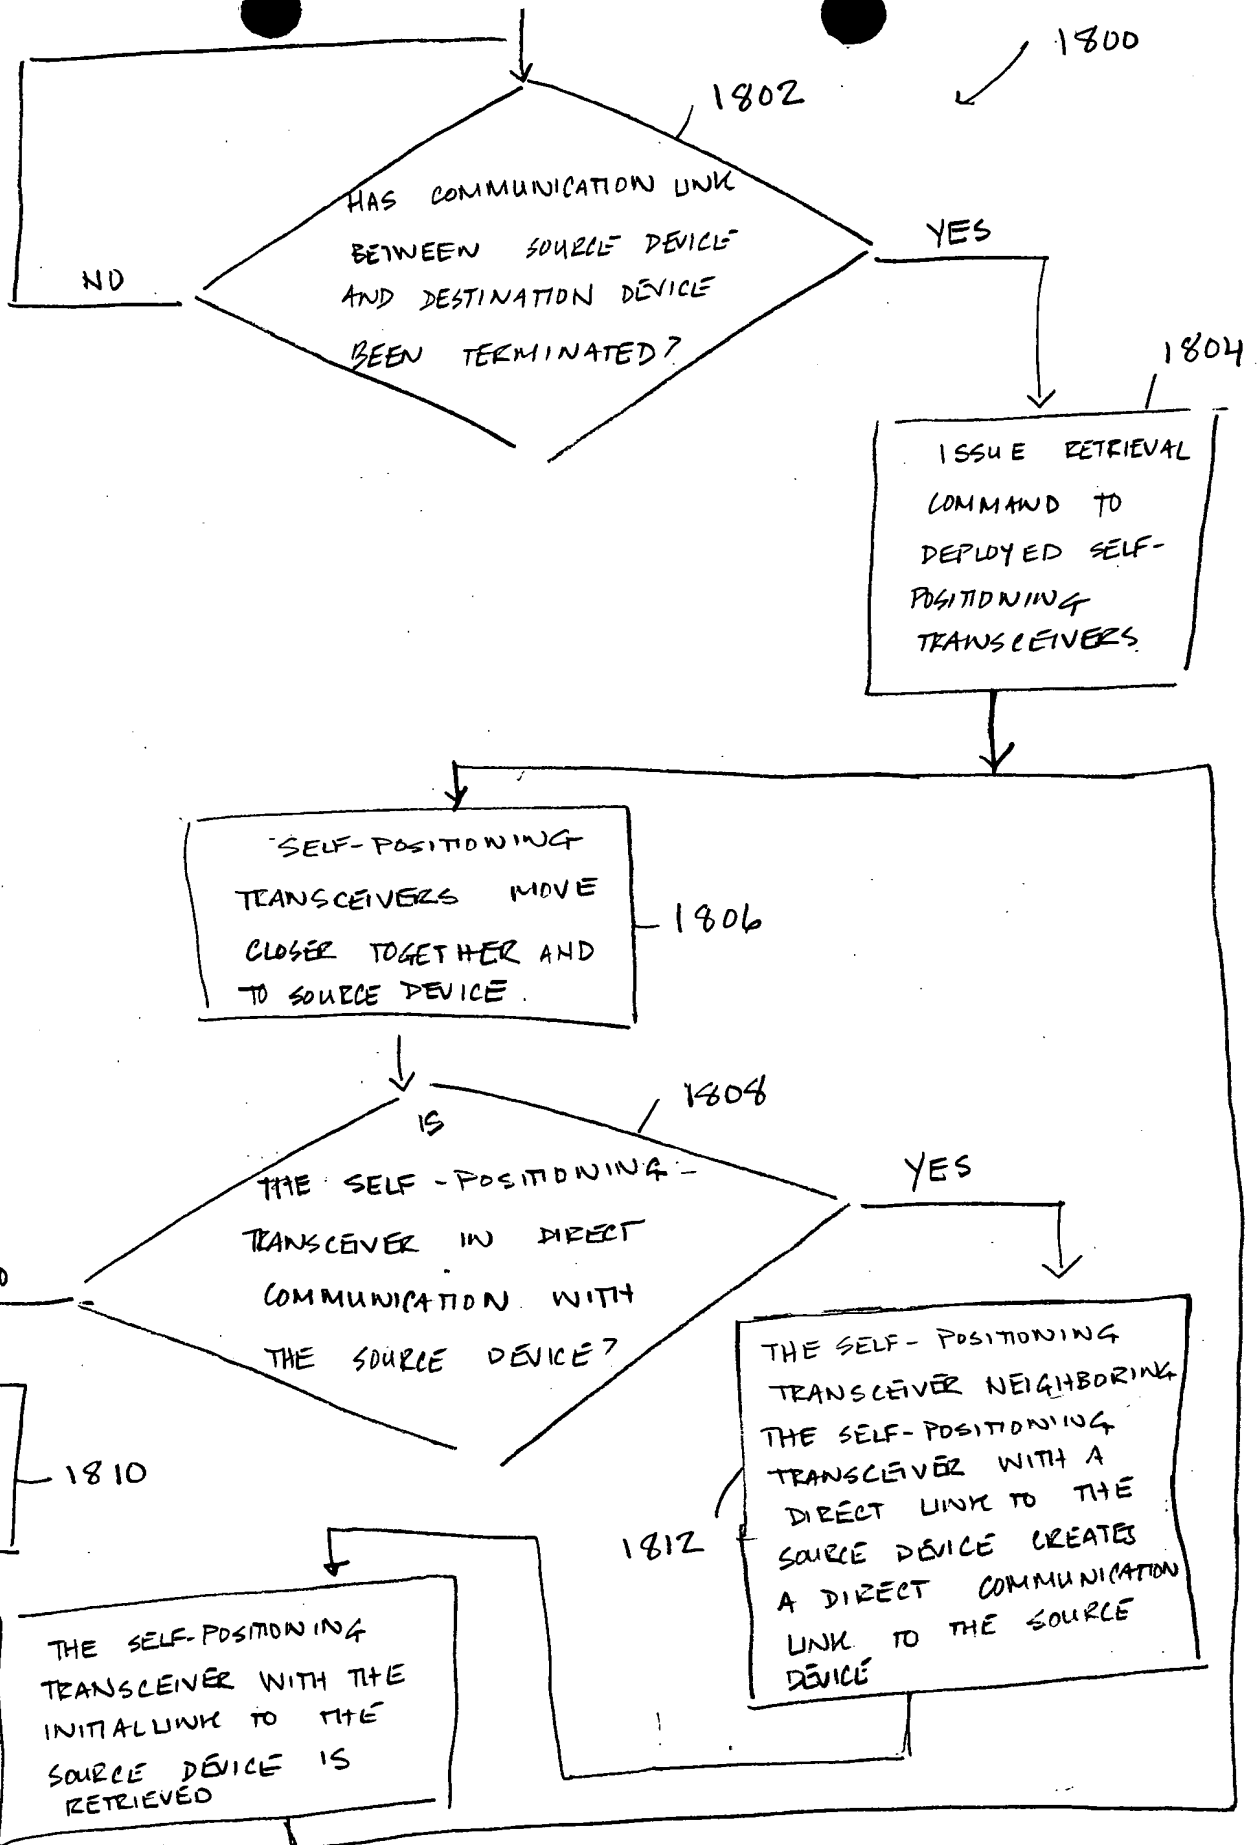 1800
1802
HAS COMMUNICATION LINK
BETWEEN SOURCE DEVICE
AND DESTINATION DEVICE
BEEN TERMINATED?
NO
YES
1804
ISSUE RETRIEVAL
COMMAND TO
DEPLOYED SELF-
POSITIONING
TRANSCEIVERS.
SELF-POSITIONING
TRANSCEIVERS MOVE
CLOSER TOGETHER AND
TO SOURCE DEVICE.
1806
1808
IS
THE SELF-POSITIONING
TRANSCEIVER IN DIRECT
COMMUNICATION WITH
THE SOURCE DEVICE?
YES
1810
THE SELF-POSITIONING
TRANSCEIVER NEIGHBORING
THE SELF-POSITIONING
TRANSCEIVER WITH A
DIRECT LINK TO THE
SOURCE DEVICE CREATES
A DIRECT COMMUNICATION
LINK TO THE SOURCE
DEVICE
1812
THE SELF-POSITIONING
TRANSCEIVER WITH THE
INITIAL LINK TO THE
SOURCE DEVICE IS
RETRIEVED